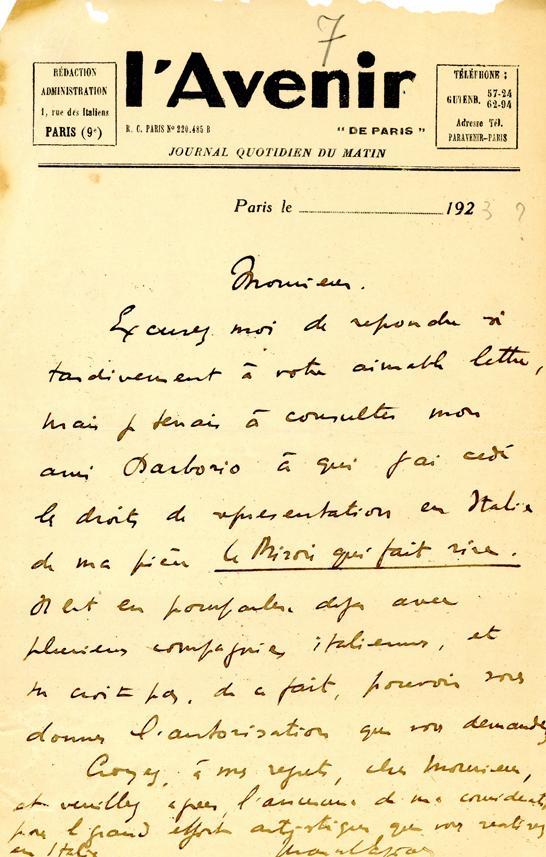 7
RÉDACTION
ADMINISTRATION
1, rue des Italiens
PARIS (9e)
l'Avenir
R. C. PARIS No 220.485 B
"DE PARIS"
TÉLÉPHONE :
GUTENB. 57-24
62-94
Adresse Tél.
PARAVENIR-PARIS
JOURNAL QUOTIDIEN DU MATIN
Paris le 1923 ?
Monsieur.
Excusez moi de repondre si
tardivement à votre aimable lettre,
mais je tenais à consulter mon
ami Barborio à qui j'ai cédé
le droits de representation en Italie
de ma pièce le Miroir qui fait rire.
Il est en pourparlers deja avec
plusieurs compagnies italiennes, et
ne croit pas, de ce fait, pouvoir vous
donner l'autorisation que vous demandez
Croyez, à mes regrets, cher Monsieur,
et veuillez agreer, l'assurance de ma
pour le grand effort artistique que vous realisez
en Italie